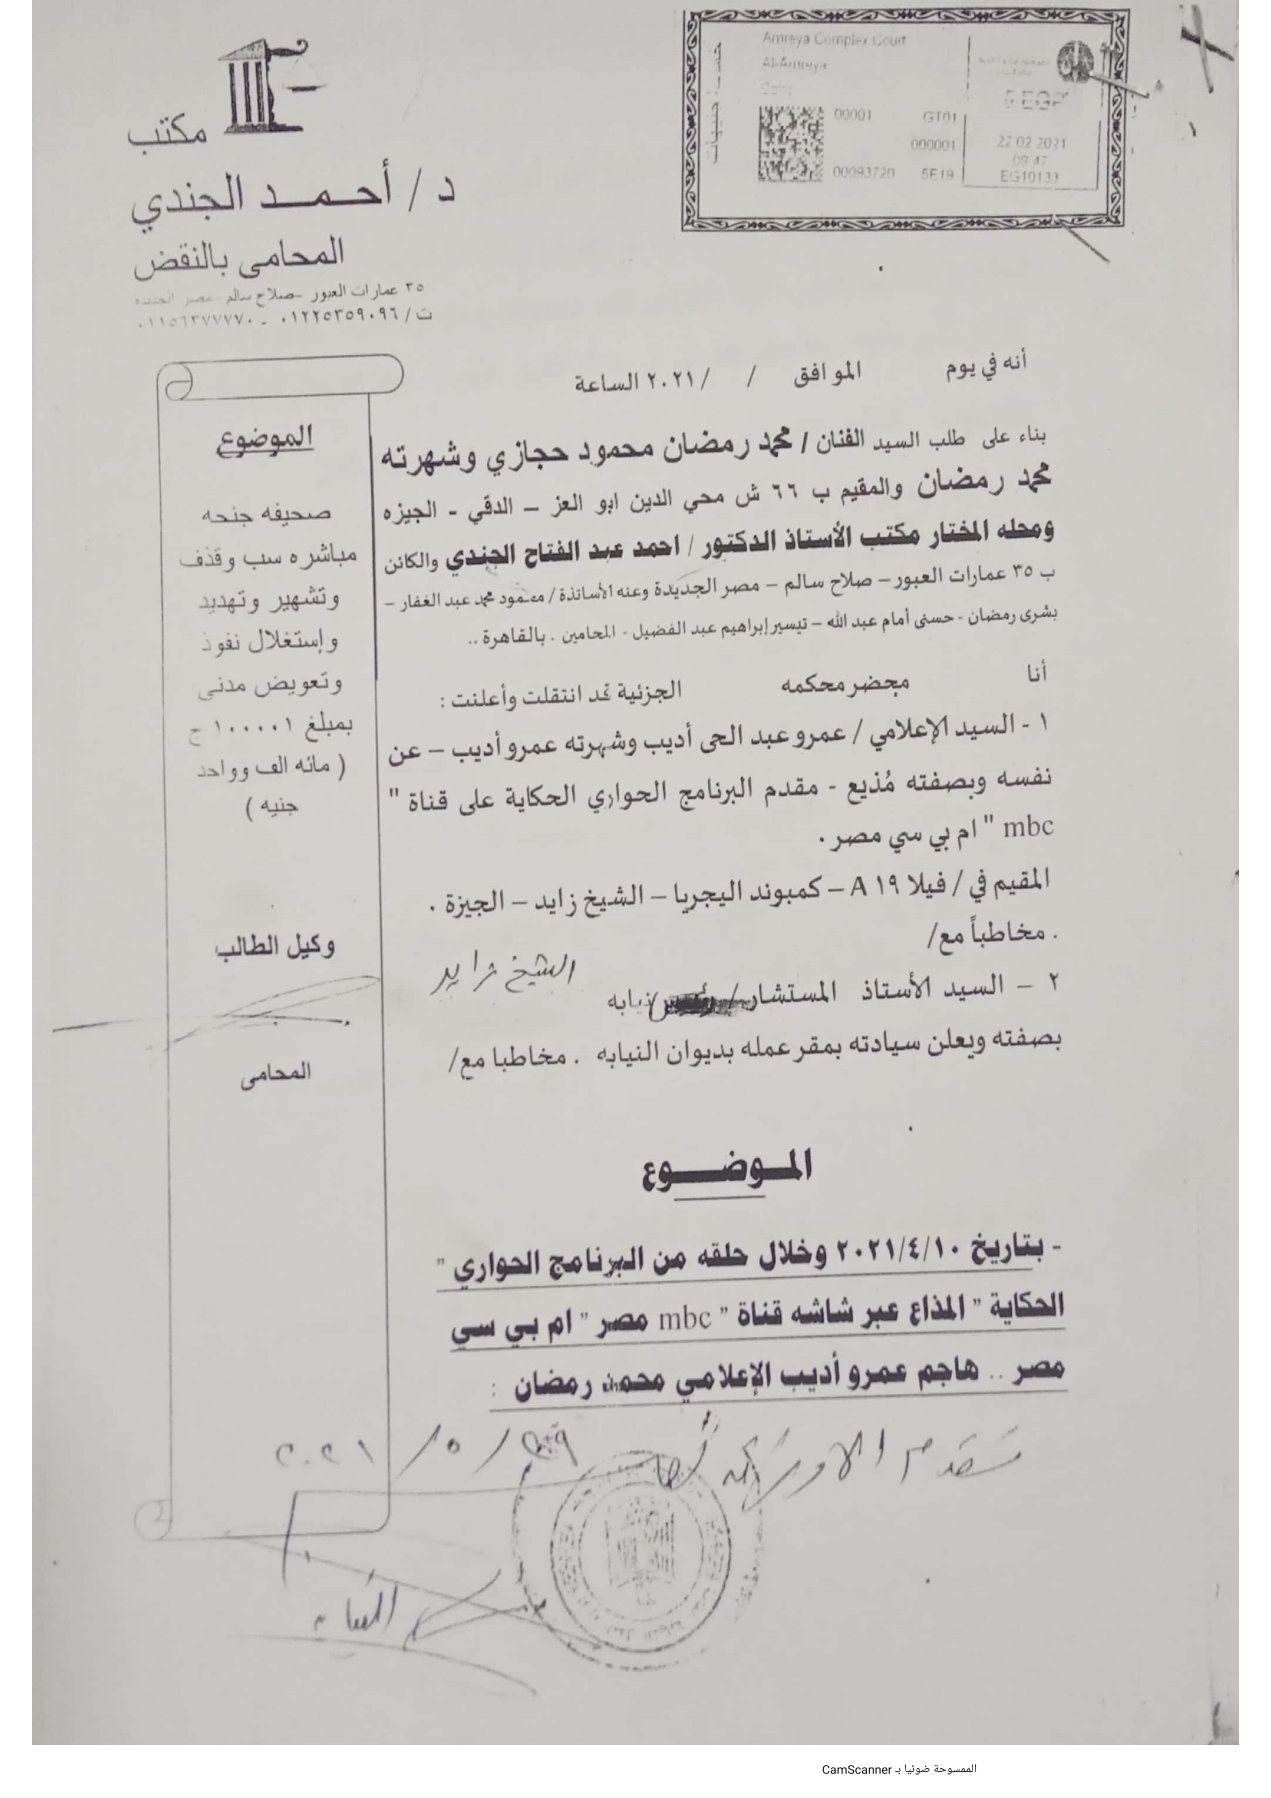 Amreya Complex Court
Al-Amreya
00001 GT01
000001
00093720 5E19
5 EGP
22 02 2021
09 47
EG10133
مكتب
د / أحمد الجندي
المحامى بالنقض
٣٥ عمارات العبور -صلاح سالم -مصر الجديدة
ت / ٠١٢٢٥٣٥٩٠٩٦ -
أنه في يوم الموافق / /٢٠٢١ الساعة
بناء على طلب السيد الفنان / محمد رمضان محمود حجازي وشهرته
محمد رمضان والمقيم ب ٦٦ ش محي الدين ابو العز – الدقي - الجيزه
ومحله المختار مكتب الأستاذ الدكتور / احمد عبد الفتاح الجندي والكائن
ب ٣٥ عمارات العبور – صلاح سالم – مصر الجديدة وعنه الأساتذة / محمود محمد عبد الغفار –
بشرى رمضان - حسنى أمام عبد الله – تيسير إبراهيم عبد الفضيل - المحامين . بالقاهرة ..
أنا محضر محكمه الجزئية قد انتقلت وأعلنت :
١ - السيد الإعلامي / عمرو عبد الحى أديب وشهرته عمرو أديب – عن
نفسه وبصفته مُذيع - مقدم البرنامج الحواري الحكاية على قناة "
mbc " ام بي سي مصر .
المقيم في / فيلا ١٩ A – كمبوند اليجريا – الشيخ زايد – الجيزة .
. مخاطباً مع/
الشيخ زايد
٢ – السيد الأستاذ المستشار / نيابه
بصفته ويعلن سيادته بمقر عمله بديوان النيابه . مخاطبا مع/
الموضوع
صحيفه جنحه
مباشره سب وقذف
وتشهير وتهديد
وإستغلال نفوذ
وتعويض مدنى
بمبلغ ١٠٠٠٠١ ج
( مائه الف وواحد
جنيه )
وكيل الطالب
المحامى
الموضوع
- بتاريخ ٢٠٢١/٤/١٠ وخلال حلقه من البرنامج الحواري "
الحكاية " المذاع عبر شاشه قناة " mbc مصر " ام بي سي
مصر .. هاجم عمرو أديب الإعلامي محمد رمضان :
الممسوحة ضوئيا بـ CamScanner